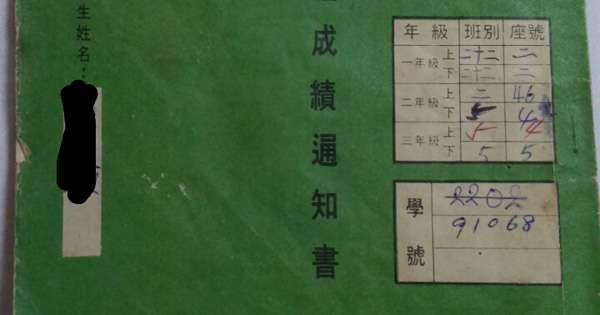 生姓名：
成績通知書
年級 班別 座號
一年級 上 二十二 二
下 二十二 二
二年級 上 二 46
下 5 4
三年級 上 5 4
下 5 5
學號
2202
91068